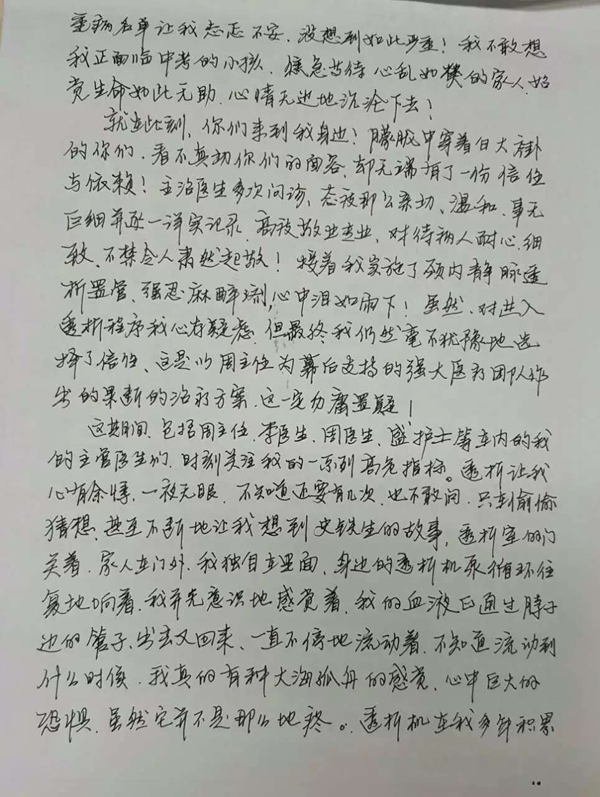 重病名单让我忐忑不安，没想到如此严重！我不敢想
我正面临中考的小孩，焦急苦待心乱如焚的家人，始
觉生命如此无助，心情无边地沉沦下去！
就在此刻，你们来到我身边！朦胧中穿着白大卦
的你们，看不真切你们的面容，却无端有了一份信任
与依赖！主治医生多次问诊，态度那么亲切、温和，事无
巨细并逐一详实记录，高度敬业专业，对待病人耐心、细
致，不禁令人肃然起敬！接着我实施了颈内静脉透
析置管，强忍麻醉剂，心中泪如雨下！虽然，对进入
透析程序我心存疑虑，但最终我仍然毫不犹豫地选
择了信任，这是以周主任为幕后支持的强大医疗团队作
出的果断的治疗方案，这一定勿庸置疑！
这期间，包括周主任、李医生、周医生、盛护士等在内的我
的主管医生们，时刻关注我的一系列高危指标。透析让我
心有余悸，一夜无眠，不知道还要有几次，也不敢问，只到偷偷
猜想，甚至不断地让我想到史铁生的故事，透析室的门
关着，家人在门外，我独自在里面，身边的透析机泵循环往
复地响着，我并无意识地感觉着，我的血液正通过脖子
边的管子，出去又回来，一直不停地流动着，不知道流动到
什么时候，我真的有种大海孤舟的感觉，心中巨大的
恐惧，虽然它并不是那么地疼。。透析机在我多年积累